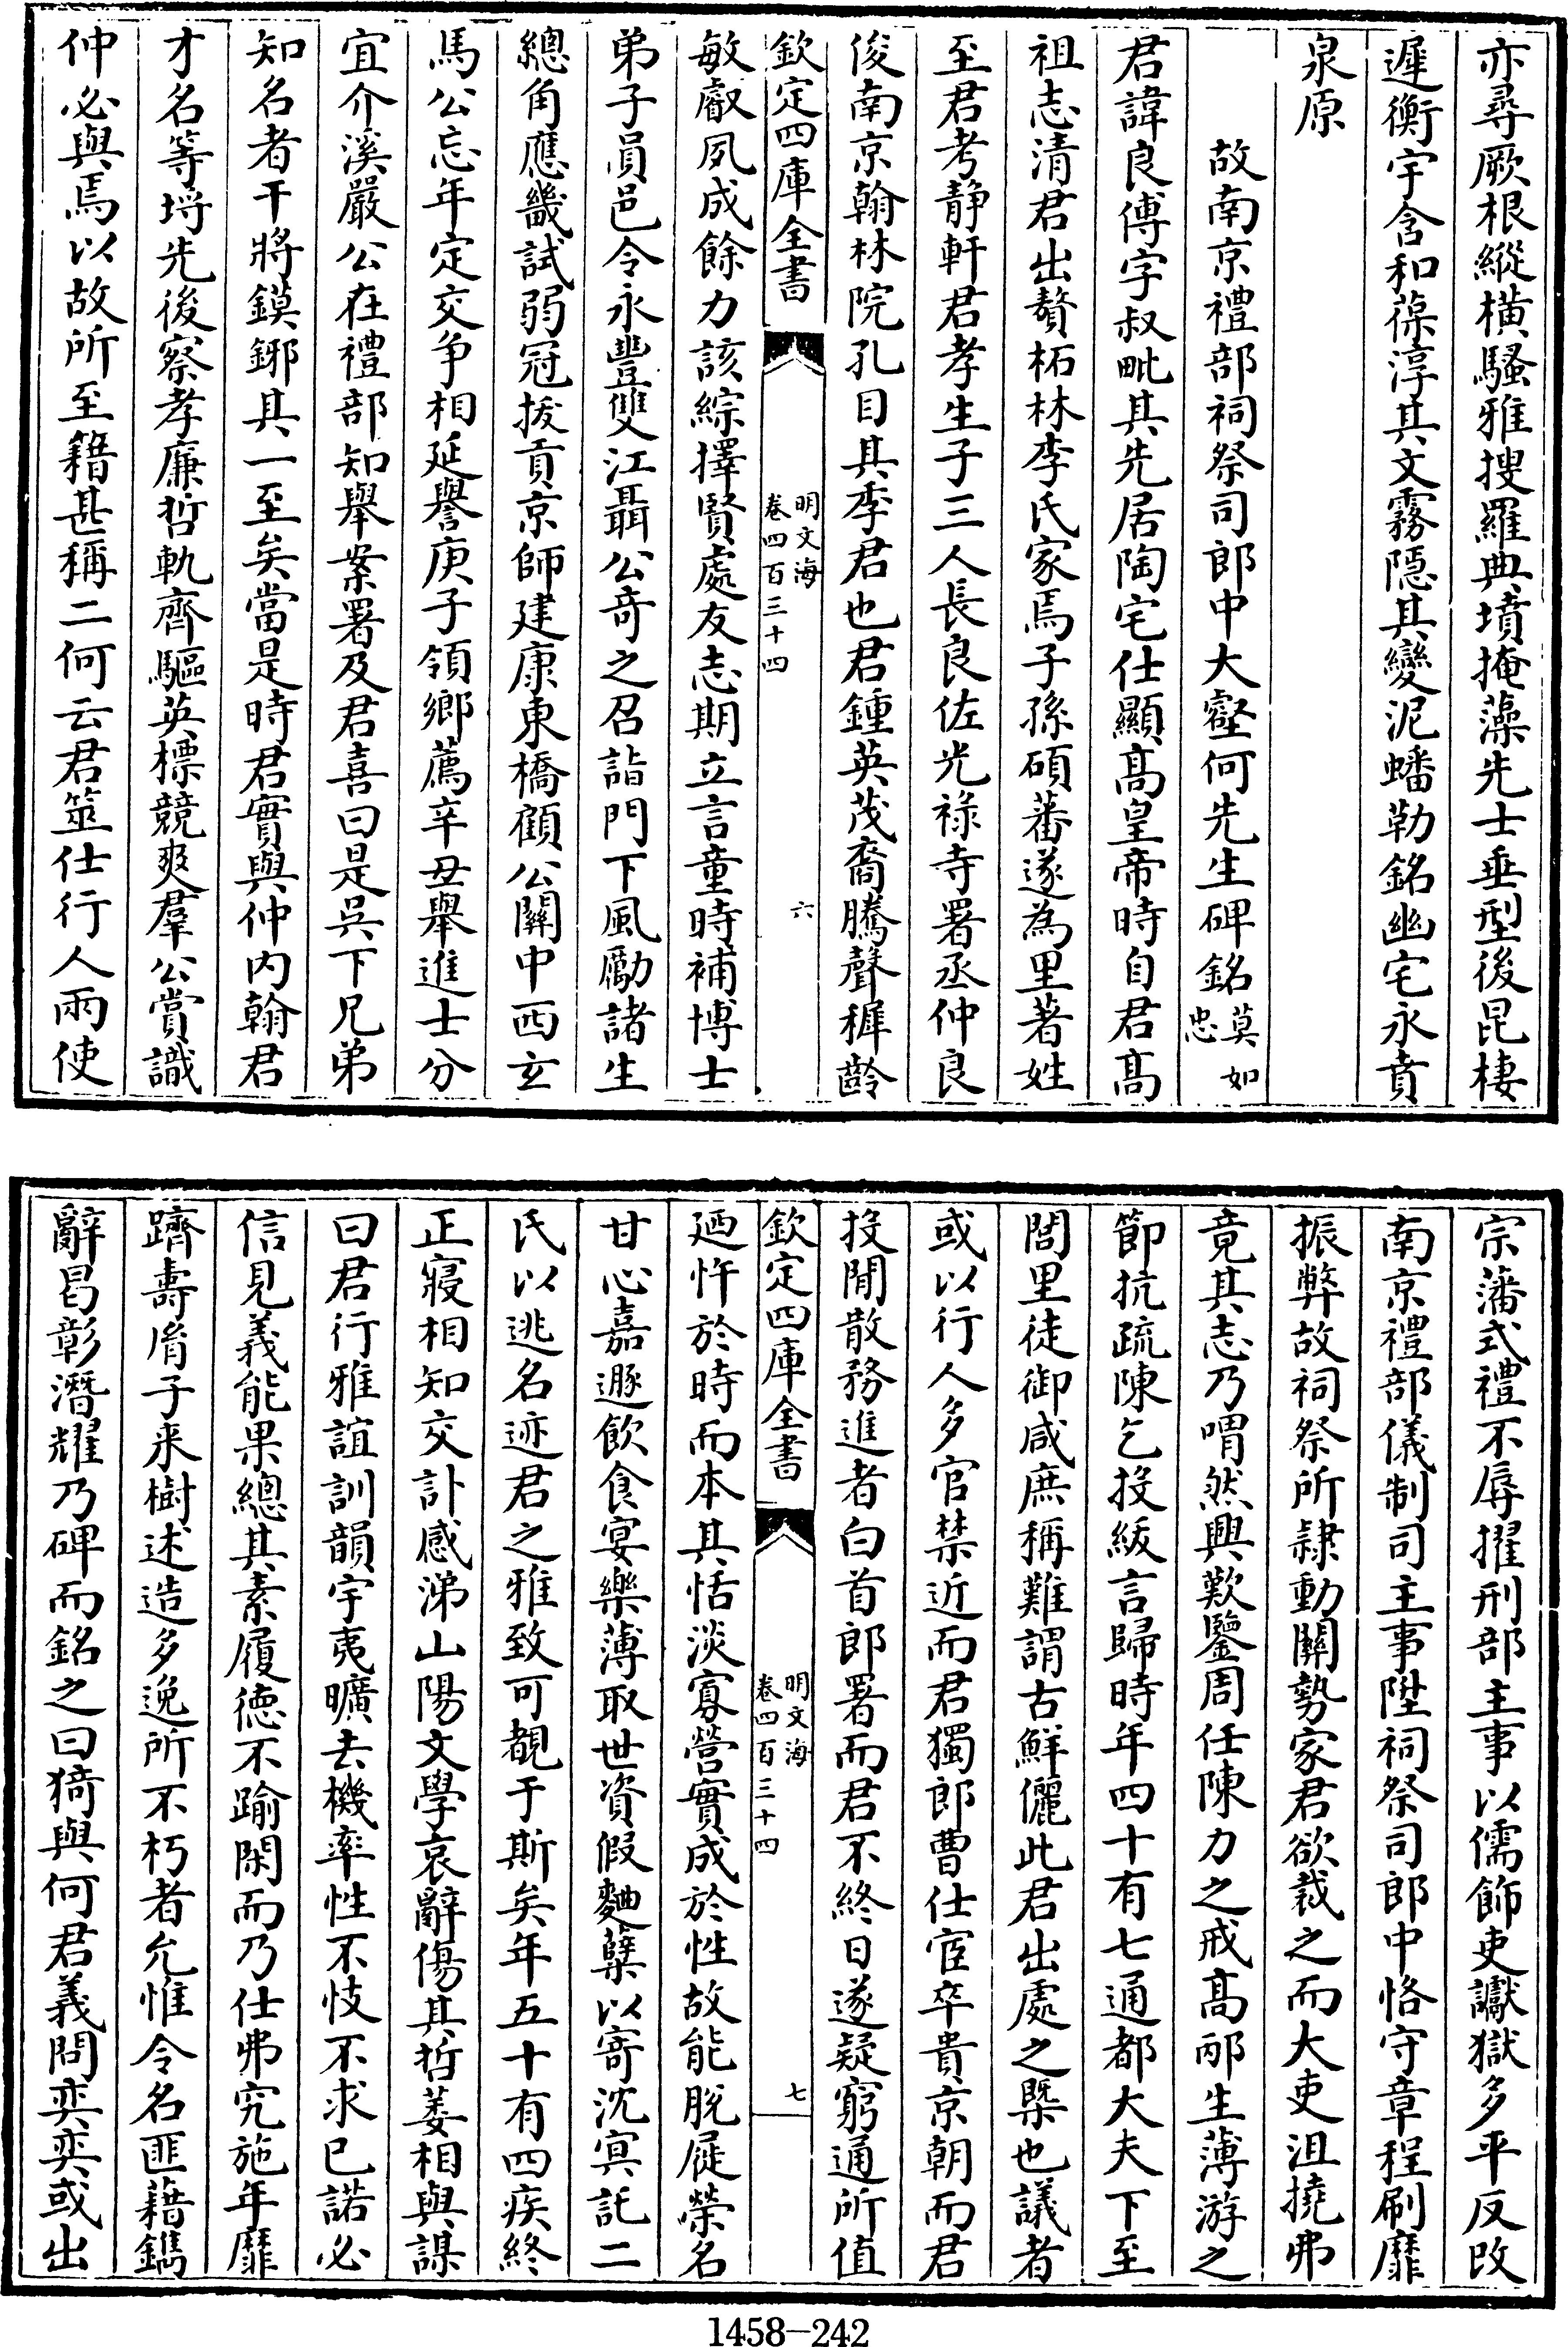 亦尋厥根縱橫騷雅搜羅典墳掩藻先士垂型後昆棲
遲衡宇含和葆淳其文霧隱其變泥蟠勒銘幽宅永賁
泉原
故南京禮部祠祭司郎中大壑何先生碑銘莫如忠
君諱良傅字叔毗其先居陶宅仕顯髙皇帝時自君髙
祖志清君出贅柘林李氏家焉子孫碩蕃遂為里著姓
至君考静軒君孝生子三人長良佐光禄寺署丞仲良
俊南京翰林院孔目其季君也君鍾英茂裔騰聲穉齡
欽定四庫全書
明文海
卷四百三十四
六
敏叡夙成餘力該綜擇賢處友志期立言童時補博士
弟子員邑令永豐雙江聶公竒之召詣門下風勵諸生
總角應畿試弱冠拔貢京師建康東橋顧公關中西玄
馬公忘年定交争相延譽庚子領鄉薦辛丑舉進士分
宜介溪嚴公在禮部知舉案署及君喜曰是吳下兄弟
知名者干將鏌鋣其一至矣當是時君實與仲内翰君
才名等埒先後察孝廉哲軌齊驅英標競爽羣公賞識
仲必與焉以故所至籍甚稱二何云君筮仕行人兩使
宗藩式禮不辱擢刑部主事以儒飾吏讞獄多平反改
南京禮部儀制司主事陞祠祭司郎中恪守章程刷靡
振弊故祠祭所隷動關勢家君欲裁之而大吏沮撓弗
竟其志乃喟然興歎鑒周任陳力之戒髙邴生薄游之
節抗疏陳乞投紱言歸時年四十有七通都大夫下至
閭里徒御咸庶稱難謂古鮮儷此君出處之槩也議者
或以行人多官禁近而君獨郎曹仕宦卒貴京朝而君
投閒散務進者白首郎署而君不終日遂疑窮通所值
欽定四庫全書
明文海
卷四百三十四
七
廼忤於時而本其恬淡寡營實成於性故能脫屣榮名
甘心嘉遯飲食宴樂薄取世資假麯糵以寄沈冥託二
氏以逃名迹君之雅致可覩于斯矣年五十有四疾終
正寢相知交訃感涕山陽文學哀辭傷其哲萎相與謀
曰君行雅誼訓韻宇夷曠去機率性不忮不求已諾必
信見義能果總其素履德不踰閑而乃仕弗究施年靡
躋壽胥子来樹述造多逸所不朽者允惟令名匪藉鐫
辭曷彰潛耀乃碑而銘之曰猗與何君義問奕奕或出
1458-242